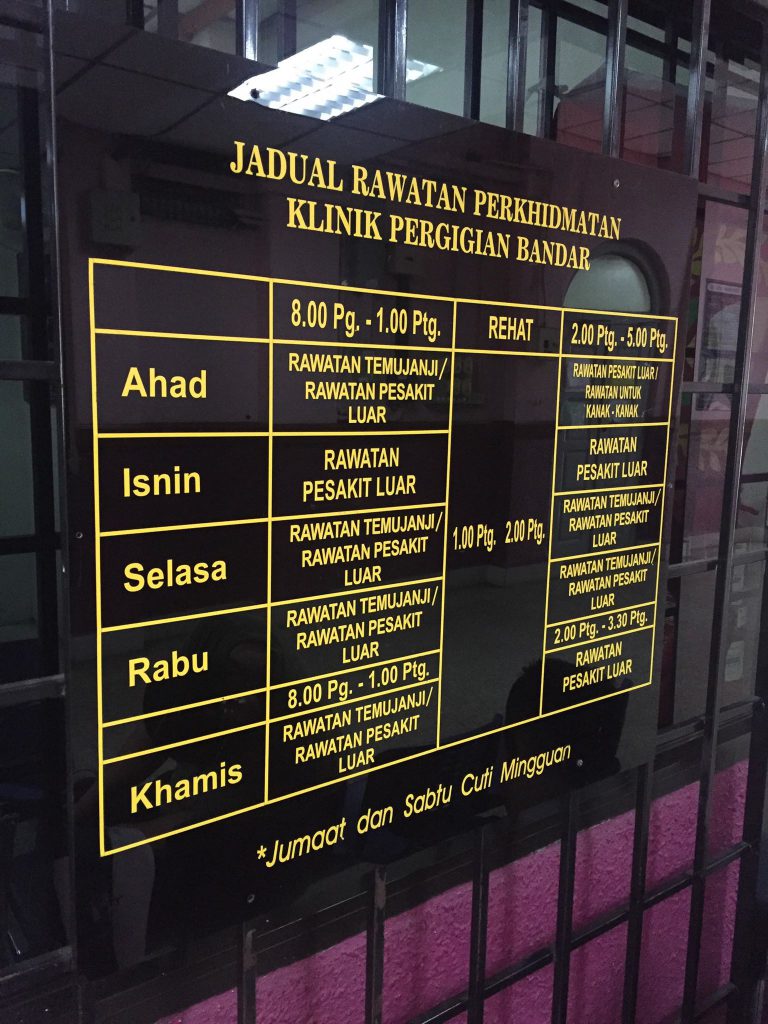 JADUAL RAWATAN PERKHIDMATAN
KLINIK PERGIGIAN BANDAR
8.00 Pg. - 1.00 Ptg.
REHAT
2.00 Ptg. - 5.00 Ptg.
Ahad
RAWATAN TEMUJANJI/
RAWATAN PESAKIT
LUAR
RAWATAN PESAKIT LUAR/
RAWATAN UNTUK
KANAK - KANAK
Isnin
RAWATAN
PESAKIT LUAR
RAWATAN
PESAKIT LUAR
1.00 Ptg. 2.00 Ptg.
Selasa
RAWATAN TEMUJANJI/
RAWATAN PESAKIT
LUAR
RAWATAN TEMUJANJI/
RAWATAN PESAKIT
LUAR
Rabu
RAWATAN TEMUJANJI/
RAWATAN PESAKIT
LUAR
RAWATAN TEMUJANJI/
RAWATAN PESAKIT
LUAR
8.00 Pg. - 1.00 Ptg.
2.00 Ptg. - 3.30 Ptg.
Khamis
RAWATAN TEMUJANJI/
RAWATAN PESAKIT
LUAR
RAWATAN
PESAKIT LUAR
*Jumaat dan Sabtu Cuti Mingguan